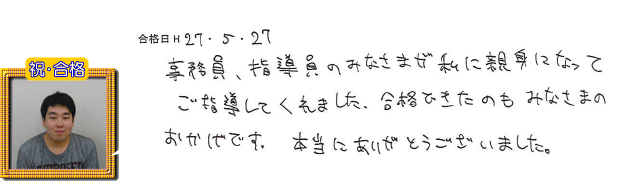 合格日H27・5・27
祝・合格
事務員、指導員のみなさまが私に親身になって
ご指導してくれました、合格できたのもみなさまの
おかげです。本当にありがとうございました。